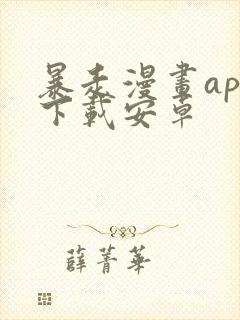 暴走漫畫ap
下載安卓
薛菁華